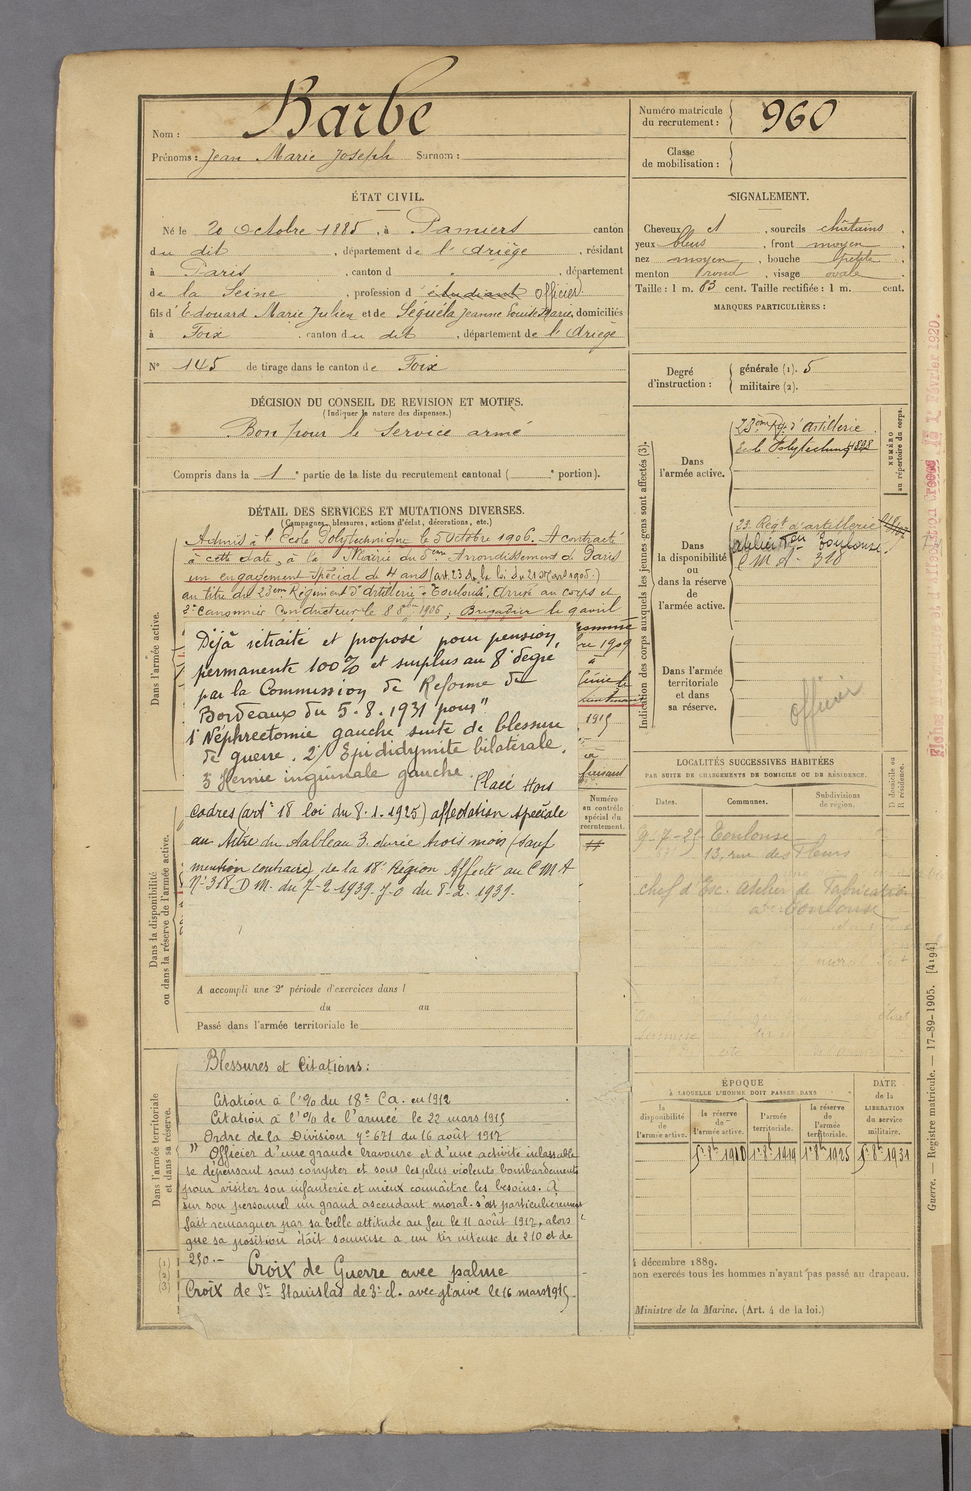 Nom : Barbe
Prénoms : Jean Marie Joseph Surnom :
Numéro matricule
du recrutement : 960
Classe
de mobilisation :
ÉTAT CIVIL.
Né le 20 Octobre 1885, à Pamiers canton
du dit, département de l'Ariège, résidant
à Paris, canton d , département
de la Seine, profession d'étudiant officier
fils d'Edouard Marie Julien et de Séquéla Jeanne Louise Marie, domiciliés
à Foix, canton du dit, département de l'Ariège
N° 145 de tirage dans le canton de Foix
SIGNALEMENT.
Cheveux et, sourcils châtains,
yeux bleus, front moyen,
nez moyen, bouche petite,
menton rond, visage ovale.
Taille : 1 m. 83 cent. Taille rectifiée : 1 m. cent.
MARQUES PARTICULIÈRES :
DÉCISION DU CONSEIL DE REVISION ET MOTIFS.
(Indiquer la nature des dispenses.)
Bon pour le service armé
Compris dans la 1e partie de la liste du recrutement cantonal ( e portion).
Degré
d'instruction :
générale (1). 5
militaire (2).
DÉTAIL DES SERVICES ET MUTATIONS DIVERSES.
(Campagnes, blessures, actions d'éclat, décorations, etc.)
Dans l'armée active.
Admis à l'Ecole Polytechnique le 5 Octobre 1906. A contracté
à cette date, à la Mairie du 5ème Arrondissement de Paris
un engagement spécial de 4 ans (art. 23 de la loi du 21 Mars 1905.)
au titre du 23ème Régiment d'Artillerie à Toulouse. Arrivé au corps et
2e canonnier conducteur le 8 8bre 1906; Brigadier le 9 avril
Déjà retraité et proposé pour pension
permanente 100% et surplus au 8e degré
par la Commission de Réforme de
Bordeaux du 5.8.1931 pour"
1° Néphrectomie gauche suite de blessure
de guerre. 2°/ Epididymite bilatérale.
3° Hernie inguinale gauche. Placé Hors
cadres (artle 18 loi du 8.1.1925) affectation spéciale
au titre du tableau 3. durée trois mois (sauf
mention contraire) de la 18e Région Affecté au C M A
N° 318 D M. du 7-2-1939. J.O du 8-2-1939.
1909
à
1915
Numéro
au contrôle
spécial du
recrutement.
Dans la disponibilité
ou dans la réserve de l'armée active.
A accompli une 2e période d'exercices dans l
du au
Passé dans l'armée territoriale le
Dans l'armée territoriale
et dans sa réserve.
Blessures et Citations :
Citation à l'% du 18e Ca. en 1912
Citation à l'% de l'armée le 22 mars 1915
Ordre de la Division n° 671 du 16 août 1917
" Officier d'une grande bravoure et d'une activité inlassable
se dépensant sans compter et sous les plus violents bombardements
pour visiter son infanterie et mieux connaître les besoins. A
sur son personnel un grand ascendant moral. s'est particulièrement
fait remarquer par sa belle attitude au feu le 11 août 1917, alors
que sa position était soumise à un tir intense de 210 et de
250.-
Croix de Guerre avec palme
Croix de St Stanislas de 3e cl. avec glaive le 16 mars 1915.
(1)
(2)
(3)
Indication des corps auxquels les jeunes gens sont affectés (3).
NUMÉRO
au répertoire du corps.
Dans
l'armée active.
23ème Rgt d'artillerie
Ecole Polytechnique
Dans
la disponibilité
ou
dans la réserve
de
l'armée active.
23. Régt d'artillerie
atelier Toulouse
C M A 318
Dans l'armée
territoriale
et dans
sa réserve.
officier
LOCALITÉS SUCCESSIVES HABITÉES
PAR SUITE DE CHANGEMENTS DE DOMICILE OU DE RÉSIDENCE.
Dates. Communes. Subdivisions
de région.
D domicile ou
R résidence.
9-7-21 Toulouse
13, rue des Fleurs
chef d'Esc. atelier de Fabrication
de Toulouse
ÉPOQUE
À LAQUELLE L'HOMME DOIT PASSER DANS
DATE
de la
LIBÉRATION
du service
militaire.
la
disponibilité
de
l'armée active.
la réserve
de
l'armée active.
l'armée
territoriale.
la réserve
de
l'armée
territoriale.
1er 8bre 1910 1er 8bre 1919 1er 8bre 1925 1er 8bre 1931
4 décembre 1889.
non exercés tous les hommes n'ayant pas passé au drapeau.
Ministre de la Marine. (Art. 4 de la loi.)
Guerre. — Registre matricule. — 17-89-1905. [4194]